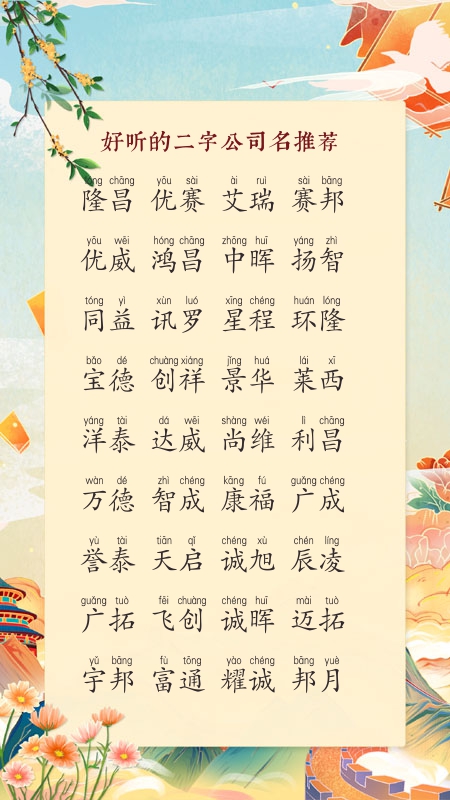 好听的二字公司名推荐
lóng chāng yōu sài ài ruì sài bāng
隆昌 优赛 艾瑞 赛邦
yōu wēi hóng chāng zhōng huī yáng zhì
优威 鸿昌 中晖 扬智
tóng yì xùn luó xīng chéng huán lóng
同益 讯罗 星程 环隆
bǎo dé chuàng xiáng jǐng huá lái xī
宝德 创祥 景华 莱西
yáng tài dá wēi shàng wéi lì chāng
洋泰 达威 尚维 利昌
wàn dé zhì chéng kāng fú guǎng chéng
万德 智成 康福 广成
yù tài tiān qǐ chéng xù chén líng
誉泰 天启 诚旭 辰凌
guǎng tuò fēi chuàng chéng huī mài tuò
广拓 飞创 诚晖 迈拓
yǔ bāng fù tōng yào chéng bāng yuè
宇邦 富通 耀诚 邦月